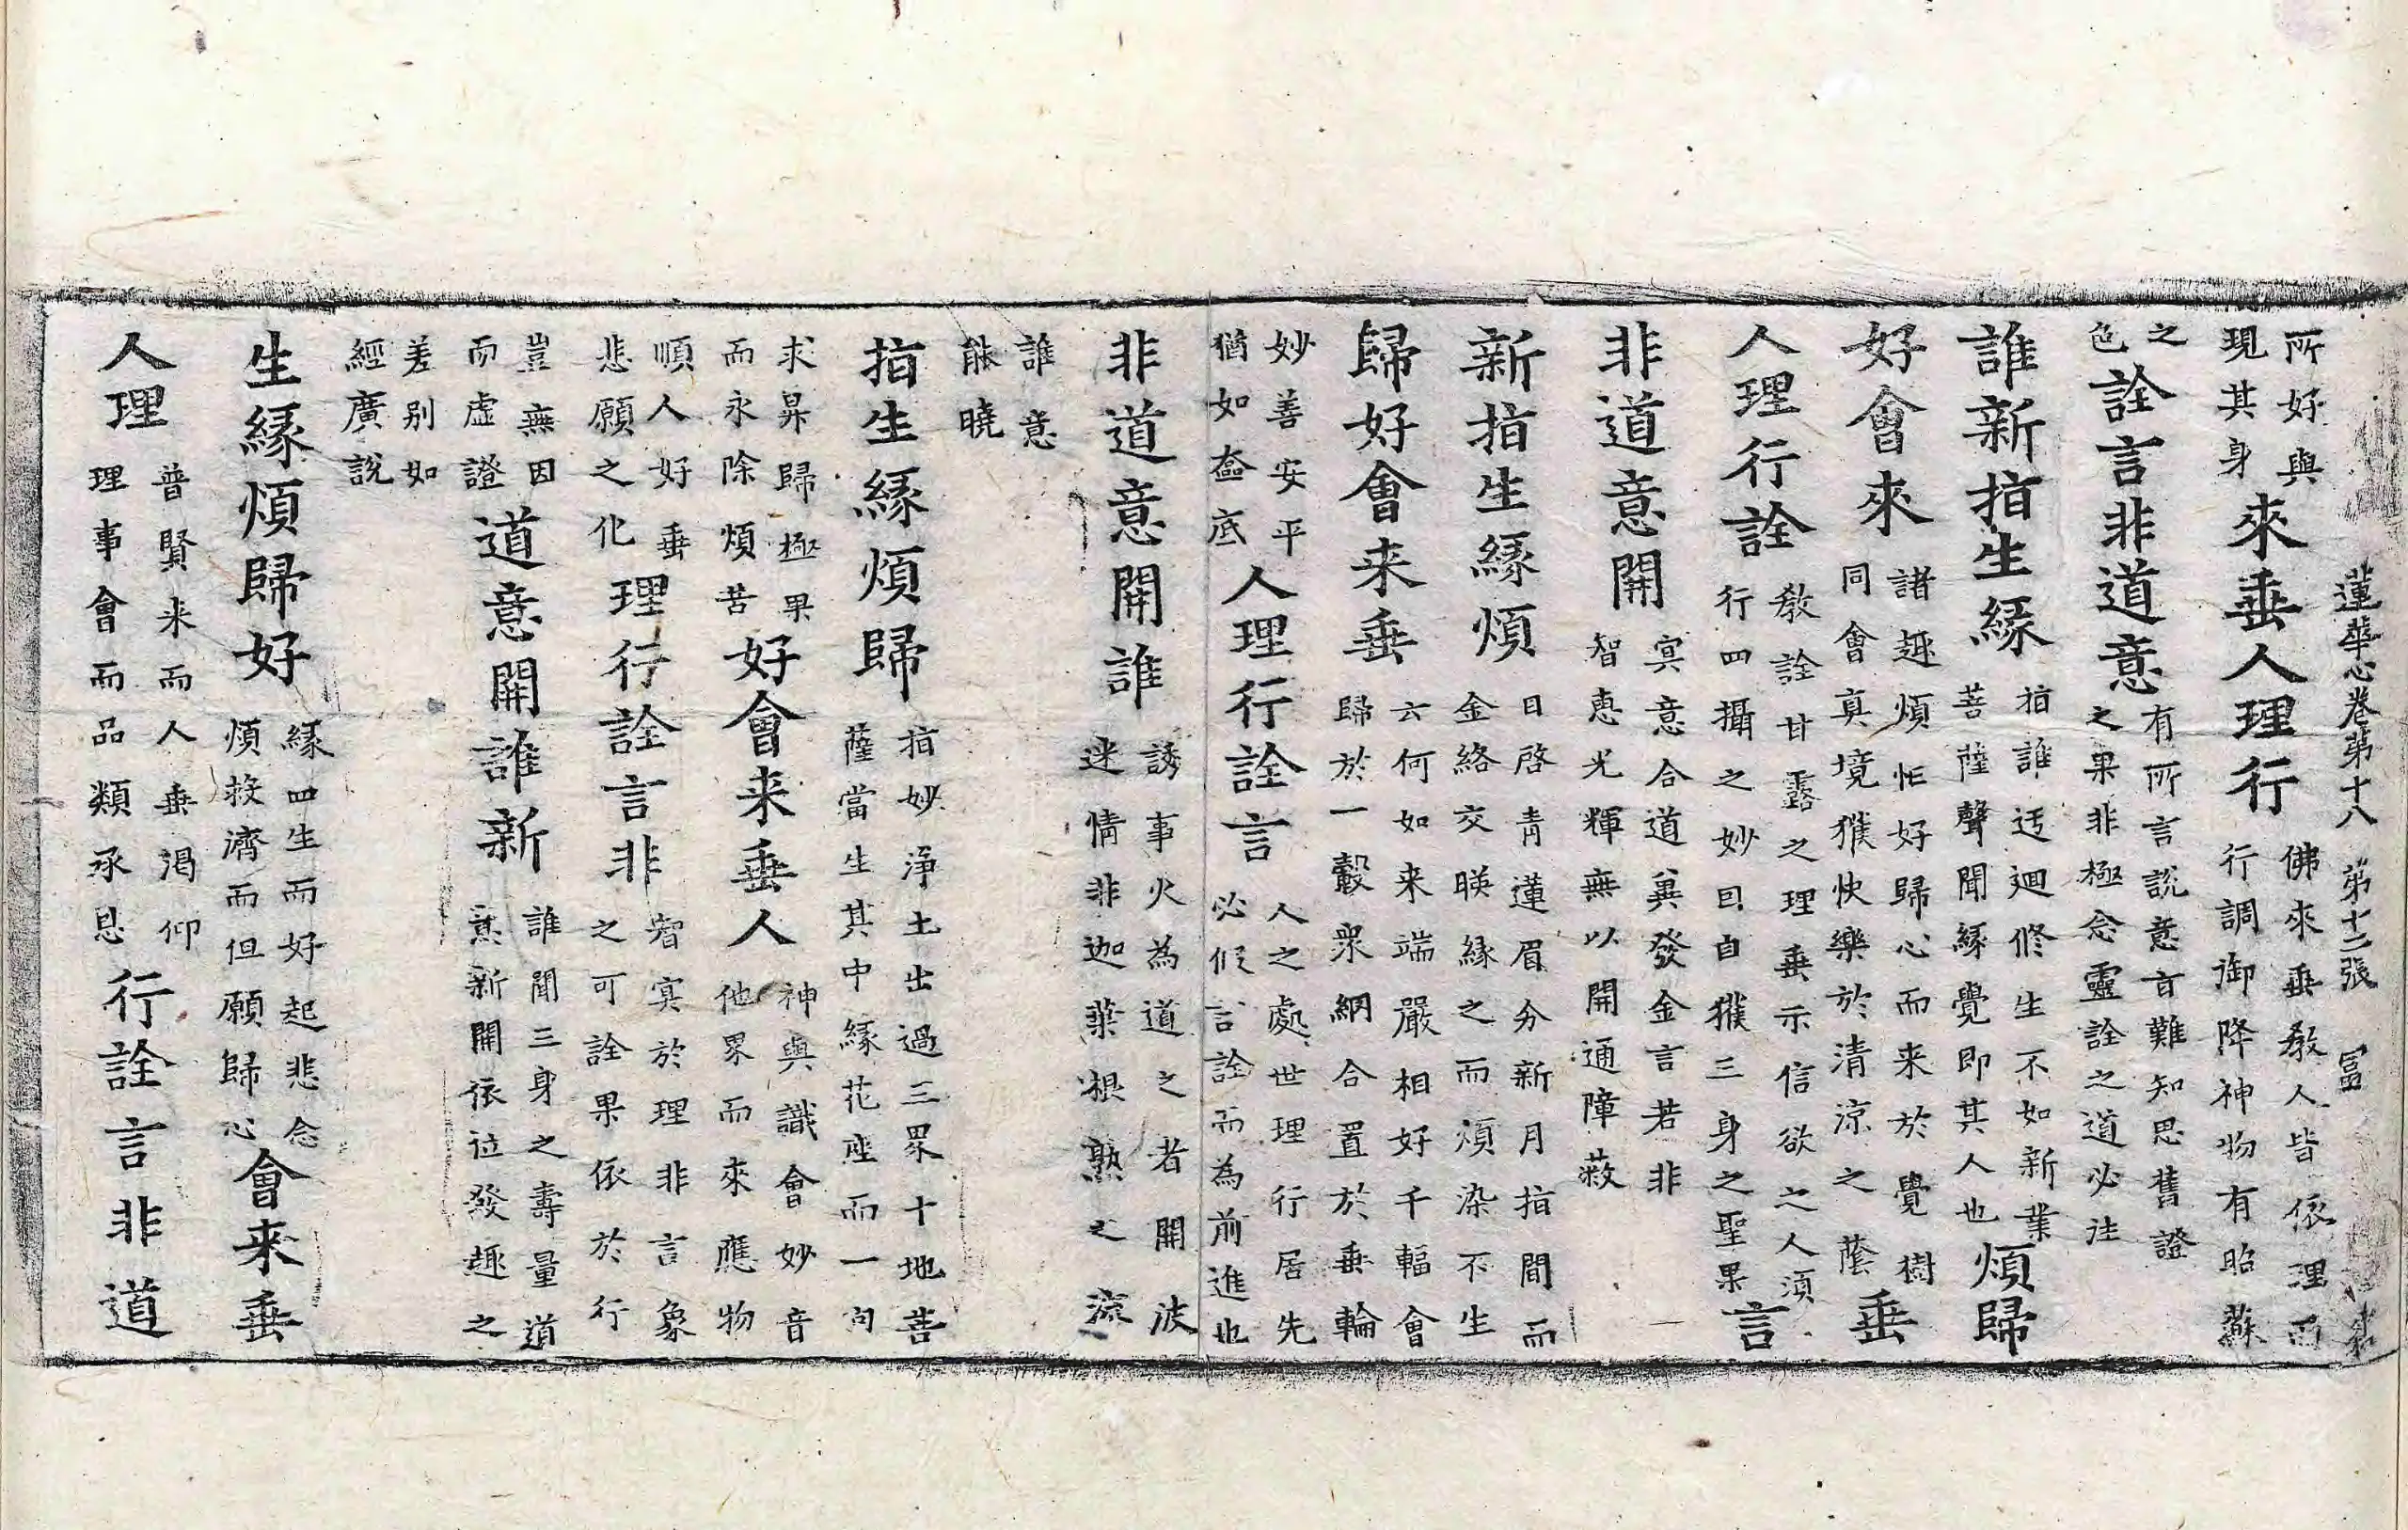 蓮華心卷第十八 第十二張 冨
所好與
現其身
來垂人理行
佛來垂教人皆依理而
行調御降神物有昭蘇
之
色
詮言非道意
有所言說意旨難知思舊證
之果非極念靈詮之道必注
誰新指生緣
指誰迂迴修生不如新業
菩薩聲聞緣覺即其人也
煩歸
好會來
諸趣煩怕好歸心而来於覺樹
同會真境獲快樂於清涼之蔭
垂
人理行詮
教詮甘露之理垂示信欲之人須
行四攝之妙因自獲三身之聖果
言
非道意開
冥意合道㒷發金言若非
智惠光輝無以開通障蔽
新指生緣煩
目啓青蓮眉分新月指間而
金絡交暎緣之而湏染不生
歸好會来垂
六何如来端嚴相好千輻會
歸於一轂眾網合置於垂輪
妙善安平
猶如奩底
人理行詮言
人之處世理行居先
必假言詮而為前進也
非道意開誰
誘事火為道之者開波
迷情非迦葉根熟之流
誰意
能曉
指生緣煩歸
指妙淨土出過三界十地菩
薩當生其中緣花座而一向
求昇歸極果
而永除煩苦
好會来垂人
神與識會妙音
他界而來應物
順人好垂
悲願之化
理行詮言非
智寞於理非言象
之可詮果依於行
豈無因
而虛證
道意開誰新
誰聞三身之壽量道
意新開依位發趣之
差別如
經廣說
生緣煩歸好
緣四生而好起悲念
煩救濟而但願歸心
會来垂
人理
普賢来而人垂渴仰
理事會而品類承恩
行詮言非道